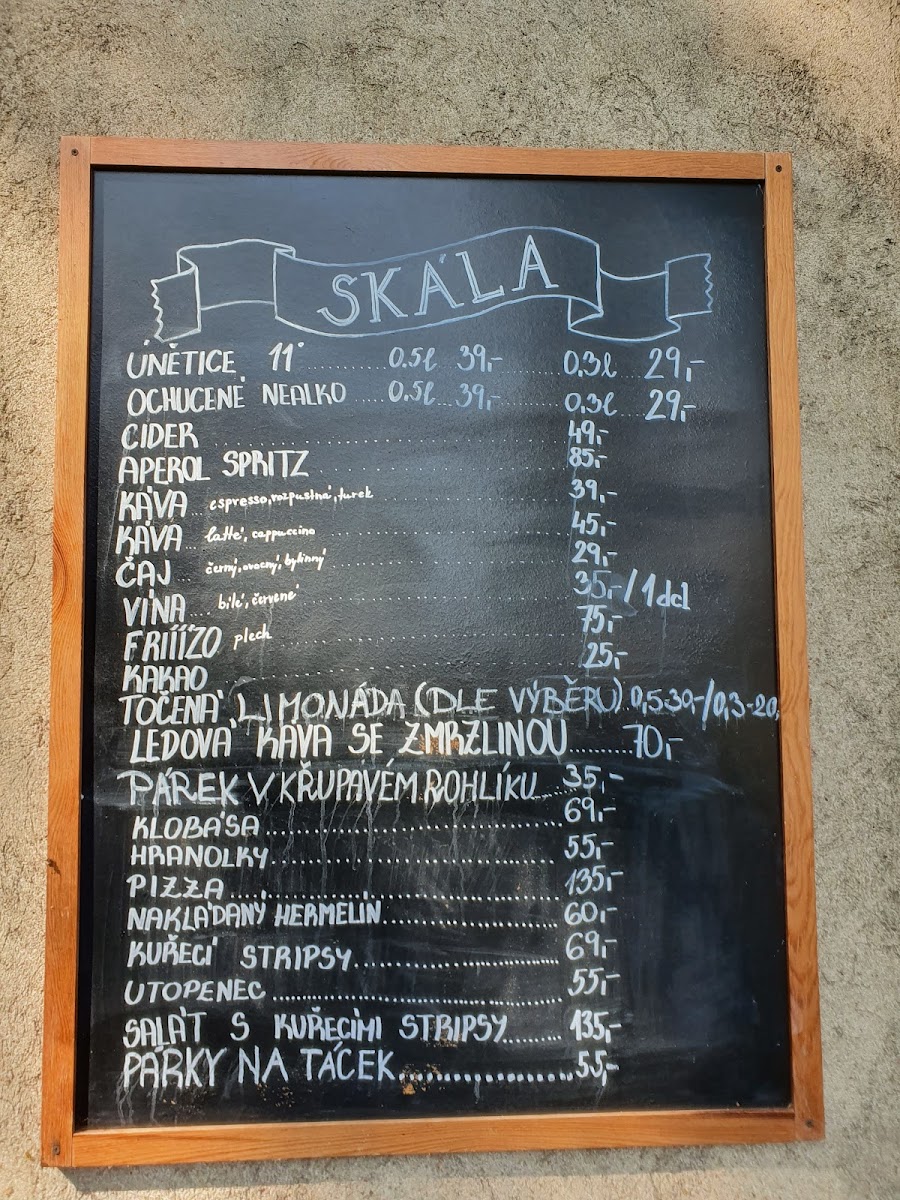 SKÁLA
ÚNĚTICE 11° ........ 0.5l 39,- 0,3l ... 29,-
OCHUCENÉ NEALKO .... 0.5l ... 39,- 0,3l ... 29,-
CIDER ........ 49,-
APEROL SPRITZ ........ 85,-
KÁVA espresso, rozpustná, turek ........ 39,-
KÁVA ... latté, cappuccino ........ 45,-
ČAJ ... černý, ovocný, bylinný ........ 29,-
VÍNA ... bílé, červené ........ 35,-/1dcl
FRIÍÍZO plech ........ 75,-
KAKAO ........ 25,-
TOČENÁ LIMONÁDA (DLE VÝBĚRU) 0,5 30,-/0,3-20,
LEDOVÁ KÁVA SE ZMRZLINOU ........ 70,-
PÁREK V KŘUPAVÉM ROHLÍKU ... 35,-
KLOBÁSA ........ 69,-
HRANOLKY ........ 55,-
PIZZA ........ 135,-
NAKLÁDANÝ HERMELÍN ........ 60,-
KUŘECÍ STRIPSY ........ 69,-
UTOPENEC ........ 55,-
SALÁT S KUŘECÍMI STRIPSY ........ 135,-
PÁRKY NA TÁCEK ........ 55,-